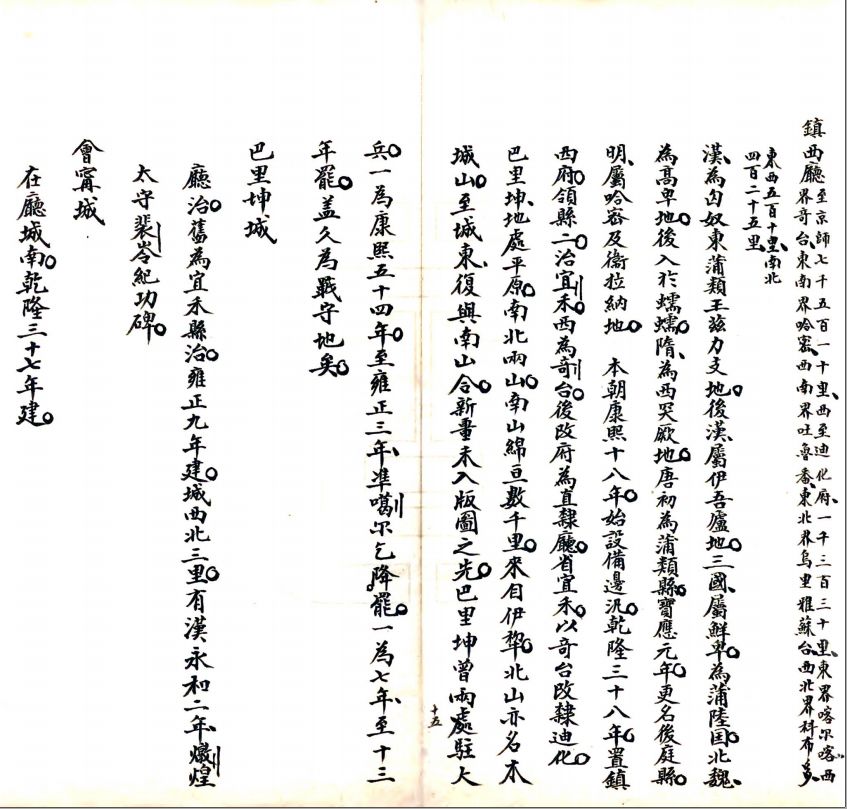 鎮西廳至京師七千五百一十里、西至迪化府、一千三百三十里、東界喀尔喀、西
界奇台、東南界哈密、西南界吐魯番、東北界烏里雅蘇台、西北界科布多、
東西五百十里、南北
四百二十五里
漢、為匈奴東蒲類王茲力支地。後漢、屬伊吾盧地。三國、屬鮮卑。為蒲陸国。北魏、
為高卑地。後入於蠕蠕。隋、為西突厥地。唐初為蒲類縣。寶應元年。更名後庭縣。
明、屬哈密及衛拉納地。 本朝康熙十八年。始設備邊汛。乾隆三十八年。置鎮
西府。領縣二。治宜禾。西為奇台。後改府為直隸廳。省宜禾。以奇台改隸迪化。
巴里坤、地處平原。南北兩山。南山綿亘數千里。來自伊犂。北山亦名木
城山。至城東、復與南山合。新畺未入版圖之先。巴里坤曾兩處駐大
十五
兵。一為康熙五十四年。至雍正三年、準噶尔乞降罷。一為七年、至十三
年罷。盖久為戰守地矣。
巴里坤城
廳治。舊為宜禾縣治。雍正九年建。城西北三里。有漢永和二年、燉煌
太守裴岑紀功碑。
會甯城
在廳城南。乾隆三十七年建。